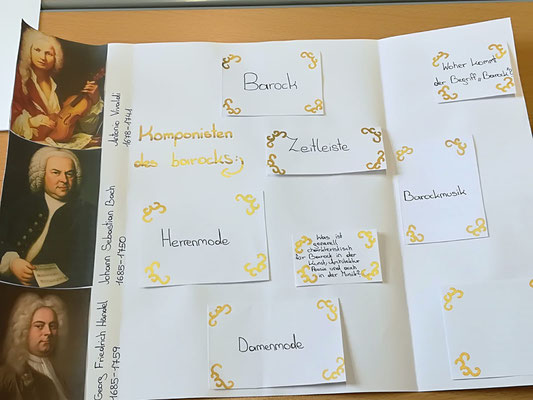 Antonio Vivaldi
1678-1741
Johann Sebastian Bach
1685-1750
Georg Friedrich Händel
1685-1759
Komponisten
des barocks:
Barock
Zeitleiste
Herrenmode
Was ist
generell
charakteristisch
für Barock in der
Kunst, Architektur
Poesie und auch
in der Musik?
Damenmode
Woher kommt
der Begriff „Barock"?
Barockmusik